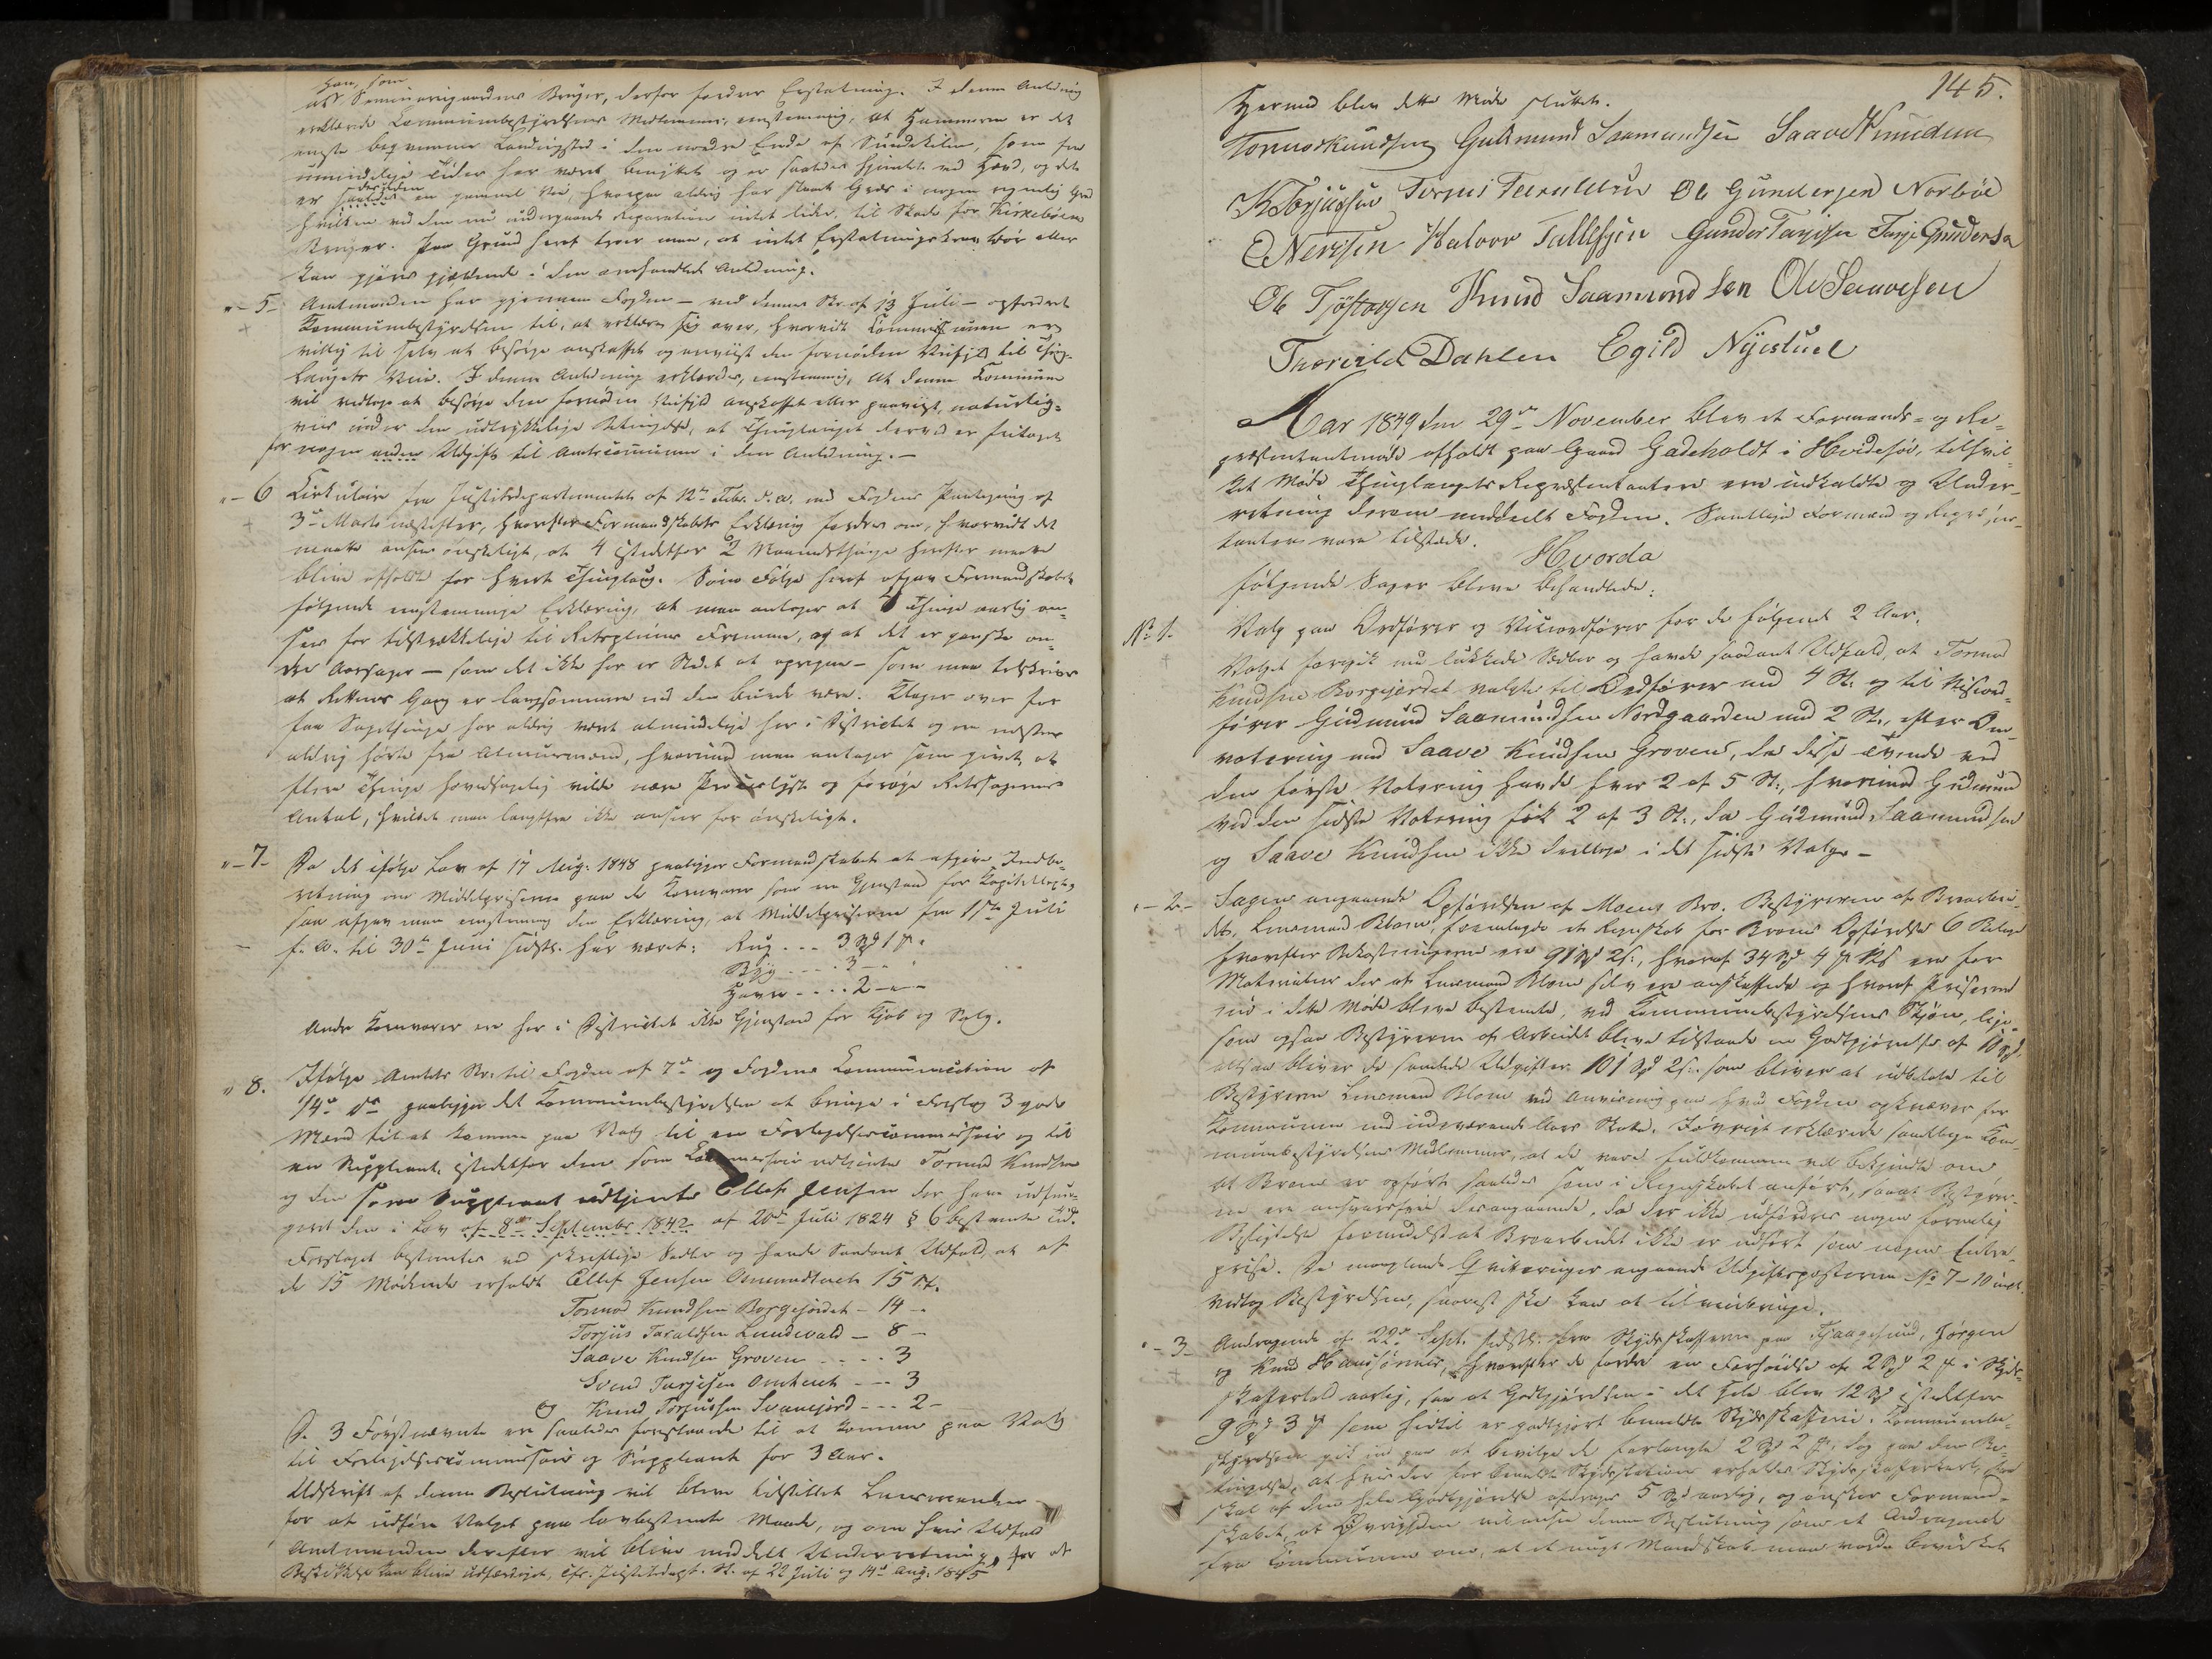 Han, som
als Seminariegaardens Bruger, derfor fordrer Erstatning. I denne Anledning
erklærede Communbestyrelsens Medlemmer, eenstemmig, at Hammeren er det
eneste beqvemme Landingssted i den nordre Ende af Sundekilen, som fra
umindelige Tider har været benyttet og er saaledes hjemlet ved Hævd, og det
desuden
er saaledes en gammel Vei, hvorpaa aldrig har staaet Græs i nogen egentlig Grad
hvilken ved den nu undergaaede Reparation intet lider, til Skade for Kirkebøens
Bruger. Paa Grund heraf troer man, at intet Erstatningskrav bør eller
kan gjøres gjældende i den omhandlede Anledning.
"- 5- Amtmanden har gjennem Fogden - ved dennes Skr. af 13 Juli - opfordret
Kommunbestyrelsen til, at erklære sig over, hvorvidt Kommunen er
villig til selv at besørge anskaffet og anviist den fornødne Veifyld til Thing-
laugets Veie. I denne Anledning erklæredes, eenstemmig, at denne Kommune
vil vedtage at besørge den fornødne Veifyld anskaffet eller paaviist, naturlig-
viis under den udtrykkelige Betingelse, at Thinglauget derved er fritaget
for nogen anden Udgift til Amtscommunen i den Anledning. -
"- 6 Cirkulaire fra Justitsdepartementet af 12te Febr. d. A. med Fogdens Paategning af
3die Marts næstefter, hvorefter Formandskabets Erklæring fordres om, hvorvidt det
maatte ansees ønskeligt, at 4 istedetfor 2 Maanedsthinge herefter maatte
blive afholdt for hvert Thinglaug. Som Følge heraf afgav Formandskabet
følgende eenstemmige Erklæring, at man antager at Thinge aarlig an-
sees for tilstrækkelige til Retspleiens Fremme, og at det er ganske an-
dre Aarsager - som det ikke her er Stedet at opregne - som man tilskriver
at Rettens Gang er langsommere end den burde være. Klager over for
faa Sagethinge har aldrig været almindelige her i Distriktet og ere næsten
aldrig hørte fra Almuesmænd, hvorimod man antager som givet, at
flere Thinge hovedsagelig vilde nære Proceslyst og forøge Retssagernes
Antal, hvilket man langtfra ikke anseer for ønskeligt.
"- 7- Da det ifølge Lov af 17 Aug. 1848 paaligger Formandskabet at afgive Indbe-
retning om Middelpriserne paa de Kornvarer som ere Gjenstand for Kapitelstaxt,
saa afgav man eenstemmig den Erklæring, at Middelpriserne fra 1ste Juli
f. A. til 30te Juni sidstl. har været: Rug - - - 3 Spd 1 ʄ "
Byg - - - - 3 - "
Havre - - - - 2 - " -
Andre Kornvarer ere her i Distriktet ikke Gjenstand for Kjøb og Salg.
" 8. Ifølge Amtets Skr. til Fogden af 7de og Fogdens Communication af
14de ds. paaligger det Kommunbestyrelsen at bringe i Forslag 3 gode
Mænd til at komme paa Valg til en Forligelsescommissair og til
en Suppleant, istedetfor den som Commissair udtjente Tormod Knudsen
og den som Suppleant udtjente Ellef Jensen der have udfun-
geret den i Lov af 8de September 1842 af 20de Juli 1824 § 6 bestemte Tid.
Forslaget bestemtes ved skriftlige Sedler og havde Saadant Udfald, at af
de 15 Mødende erholdt Ellef Jensen Ommodtvet 15 St.
Tormod Knudsen Borgejordet - 14 -
Torjus Taraldsen Lundevald - 8 -
Saave Knudsen Groven - - - - 3
Svend Tarjesen Omtveit - - - 3
og Knud Torjussen Svanejord - - - 2 -
De 3 Førstnævnte ere saaledes foreslaaede til at komme paa Valg
til Forligelsescommissair og Suppleant for 3 Aar.
Udskrift af denne Beslutning vil blive tilstillet Lensmanden
for at udføre Valget paa lovbestemte Maade, og om hvis Udfald
Amtmanden derefter vil blive meddelt Underretning, for at
Beskikkelse kan blive udfærdiget, cfr. Justitsdept. Sk. af 22 Juli og 14de Aug. 1845
145.
Hermed blev dette Møde sluttet.
Tormod Knudsen Gudmund Saamundsen Saave Knudsen
K Torjusen Torjus Taraldsen Ole Gundersen Norbøe
E Nerisen Halvor Tallefsen Gunder Tarjesen Tarje Gundersen
Ole Tjøstovsen Knud Saamundsen Ole Saavesen
Thorvild Dahlen Egild Nyestuel
Aar 1849 den 29de November blev et Formands- og Re-
præsentantmøde afholdt paa Gaard Gadeholdt i Hvidesøe, tilhvil-
ket Møde Thinglaugets Repræsentantere ere indkaldte og Under-
retning derom meddeelt Fogden. Samtlige Formænd og Repræsen-
tanter vare tilstæde.
Hvorda
følgende Sager bleve behandlede:
No 1. Valg paa Ordfører og Viceordfører for de følgende 2 Aar.
Valget foregik med lukkede Sedler og havde saadant Udfald, at Tormod
Knudsen Borgejordet valgtes til Ordfører med 4 St. og til Viceord-
fører Gudmund Saamundsen Nordgaarden med 2 St., efter Om-
votering med Saave Knudsen Groven, da disse Tvende ved
den første Votering havde hver 2 af 5 St., hvorimod Gudmund
ved den sidste Votering fik 2 af 3 St., da Gudmund Saamundsen
og Saave Knudsen ikke deeltoge i det sidste Valg. -
"- 2- Sagen angaaende Opførelsen af Moens Bro. Bestyreren af Broarbei-
det, Lensmand Blom, fremlagde et Regnskab for Broens Opførelse 6 Bilage
hvorefter Bekostningerne ere 91 Spd 2 s., hvoraf 34 Spd 4 ʄ ere for
Materialier der af Lensmand Blom selv ere anskaffede og hvoraf Priserne
nu i dette Møde bleve bestemte, ved Kommunebestyrelsens Skjøn, lige-
som ogsaa Bestyreren af Arbeidet bleve tilstaaede en Godtgjørelse af 10 Spd.
altsaa bliver de samlede Udgifter 101 Spd 2 s. som bliver at udbetale til
Bestyreren Lensmand Blom ved Anviisning paa hvad Fogden opkræver for
Kommunen med indeværende Aars Skat. Iøvrigt erklærede samtlige Kom-
munbestyrelsens Medlemmer, at de vare fuldkommen vel bekjendte om
at Broen er opført saaledes som i Regnskabet anført, saaat Bestyrer-
en ere ansvarsfrie desangaaende, da der ikke udfordres nogen formelig
Besigtelse formedelst at Broarbeidet ikke er udført som nogen Entre-
prise. De manglende Qvitteringer angaaende Udgiftsposterne No 7-10 incl.
vedtog Bestyrelsen, snarest ske kan at tilveiebringe.
"- 3- Andragende af 22de Sept. sidstl. fra Skydsskafferne paa Spaagesund, Jørgen
og Knud Hanssønner, hvorefter de fordre en Forhøielse af 2 Spd 2 ʄ i Skyds-
skafferhold aarlig, saa at Godtgjørelsen i det Hele blev 12 Spd istedetfor
9 Spd 3 ʄ som hidtil er godtgjort bemeldte Skydsskafferie. Kommunebe-
styrelsen gik ind paa at bevilge de forlangte 2 Spd 2 ʄ, dog paa den Be-
tingelse, at hvis der for bemeldte Skydsstation erholdes Skydsskafferkarl, der
skal af den hele Godtgjørelse afdrages 5 Spd aarlig, og ønsker Formand-
skabet, at Øvrigheden vil ansee denne Beslutning som et Andragende
fra Kommunen om, at et nyt Mandskab maa vorde bevirket